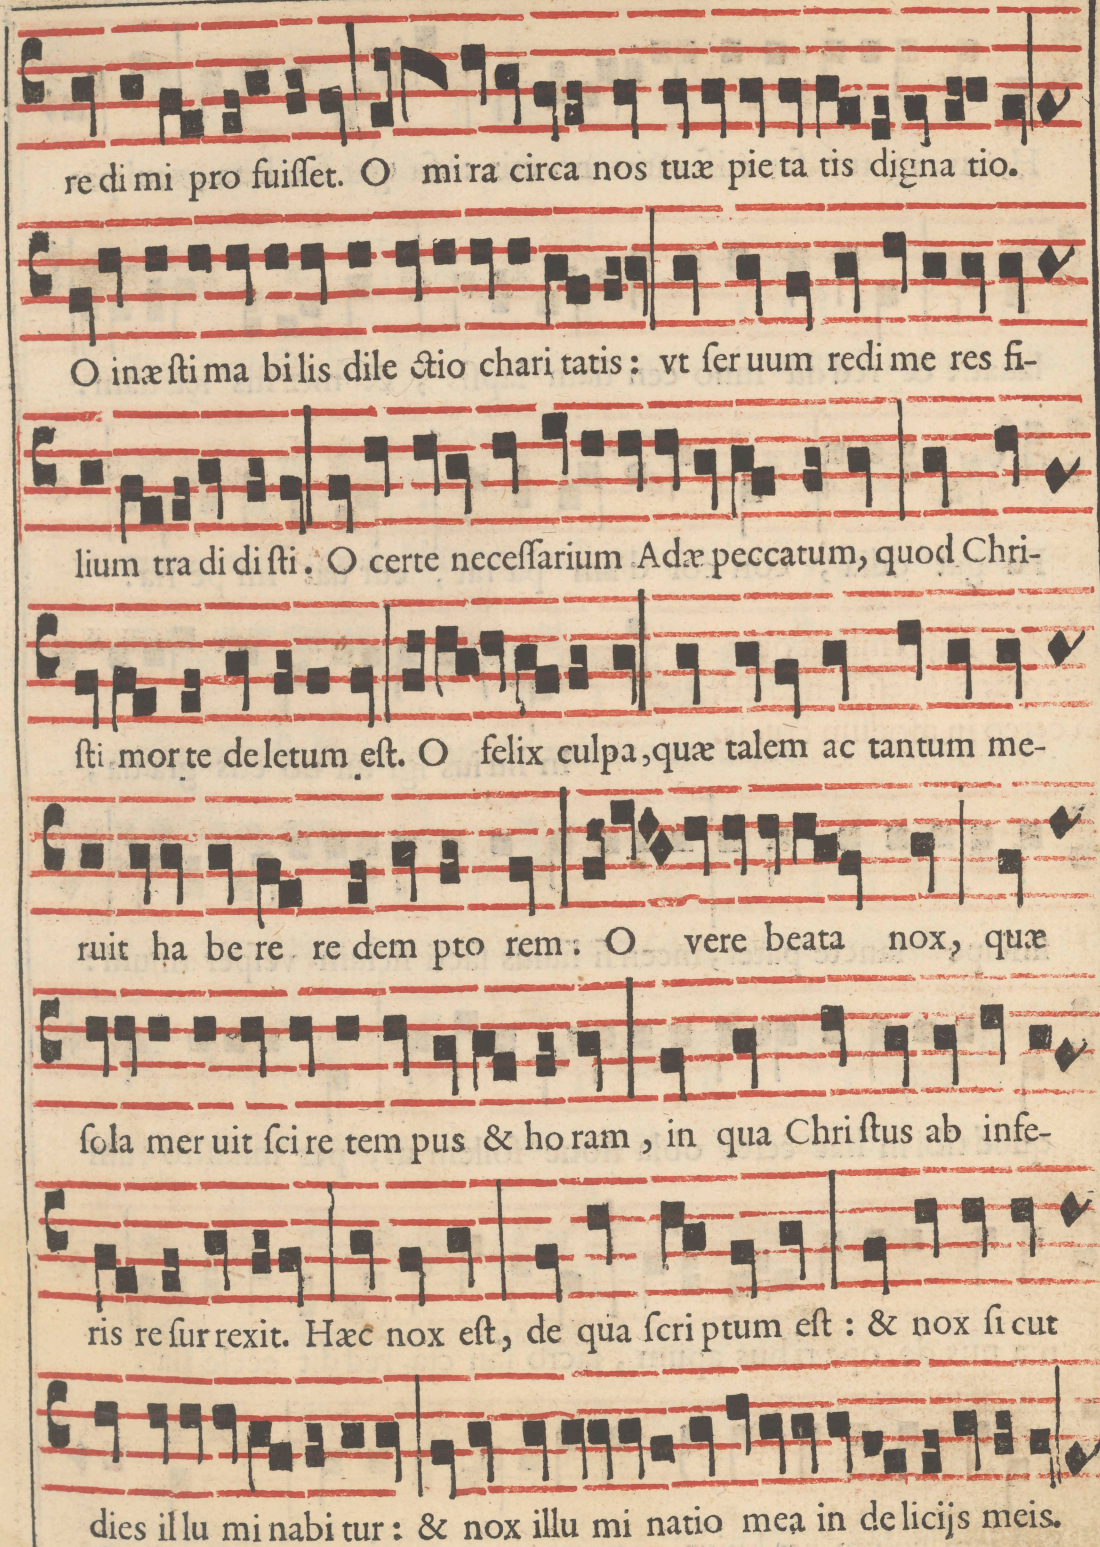 re di mi pro fuiſſet. O mira circa nos tuæ pie ta tis digna tio.
O inæ ſti ma bi lis dile ctio chari tatis : vt ſer uum redi me res fi-
lium tra di di ſti. O certe neceſſarium Adæ peccatum, quod Chri-
ſti mor te de letum eſt. O felix culpa, quæ talem ac tantum me-
ruit ha be re re dem pto rem. O vere beata nox, quæ
ſola mer uit ſci re tem pus & ho ram , in qua Chri ſtus ab infe-
ris re ſur rexit. Hæc nox eſt, de qua ſcri ptum eſt : & nox ſi cut
dies il lu mi nabi tur : & nox illu mi natio mea in de licijs meis.